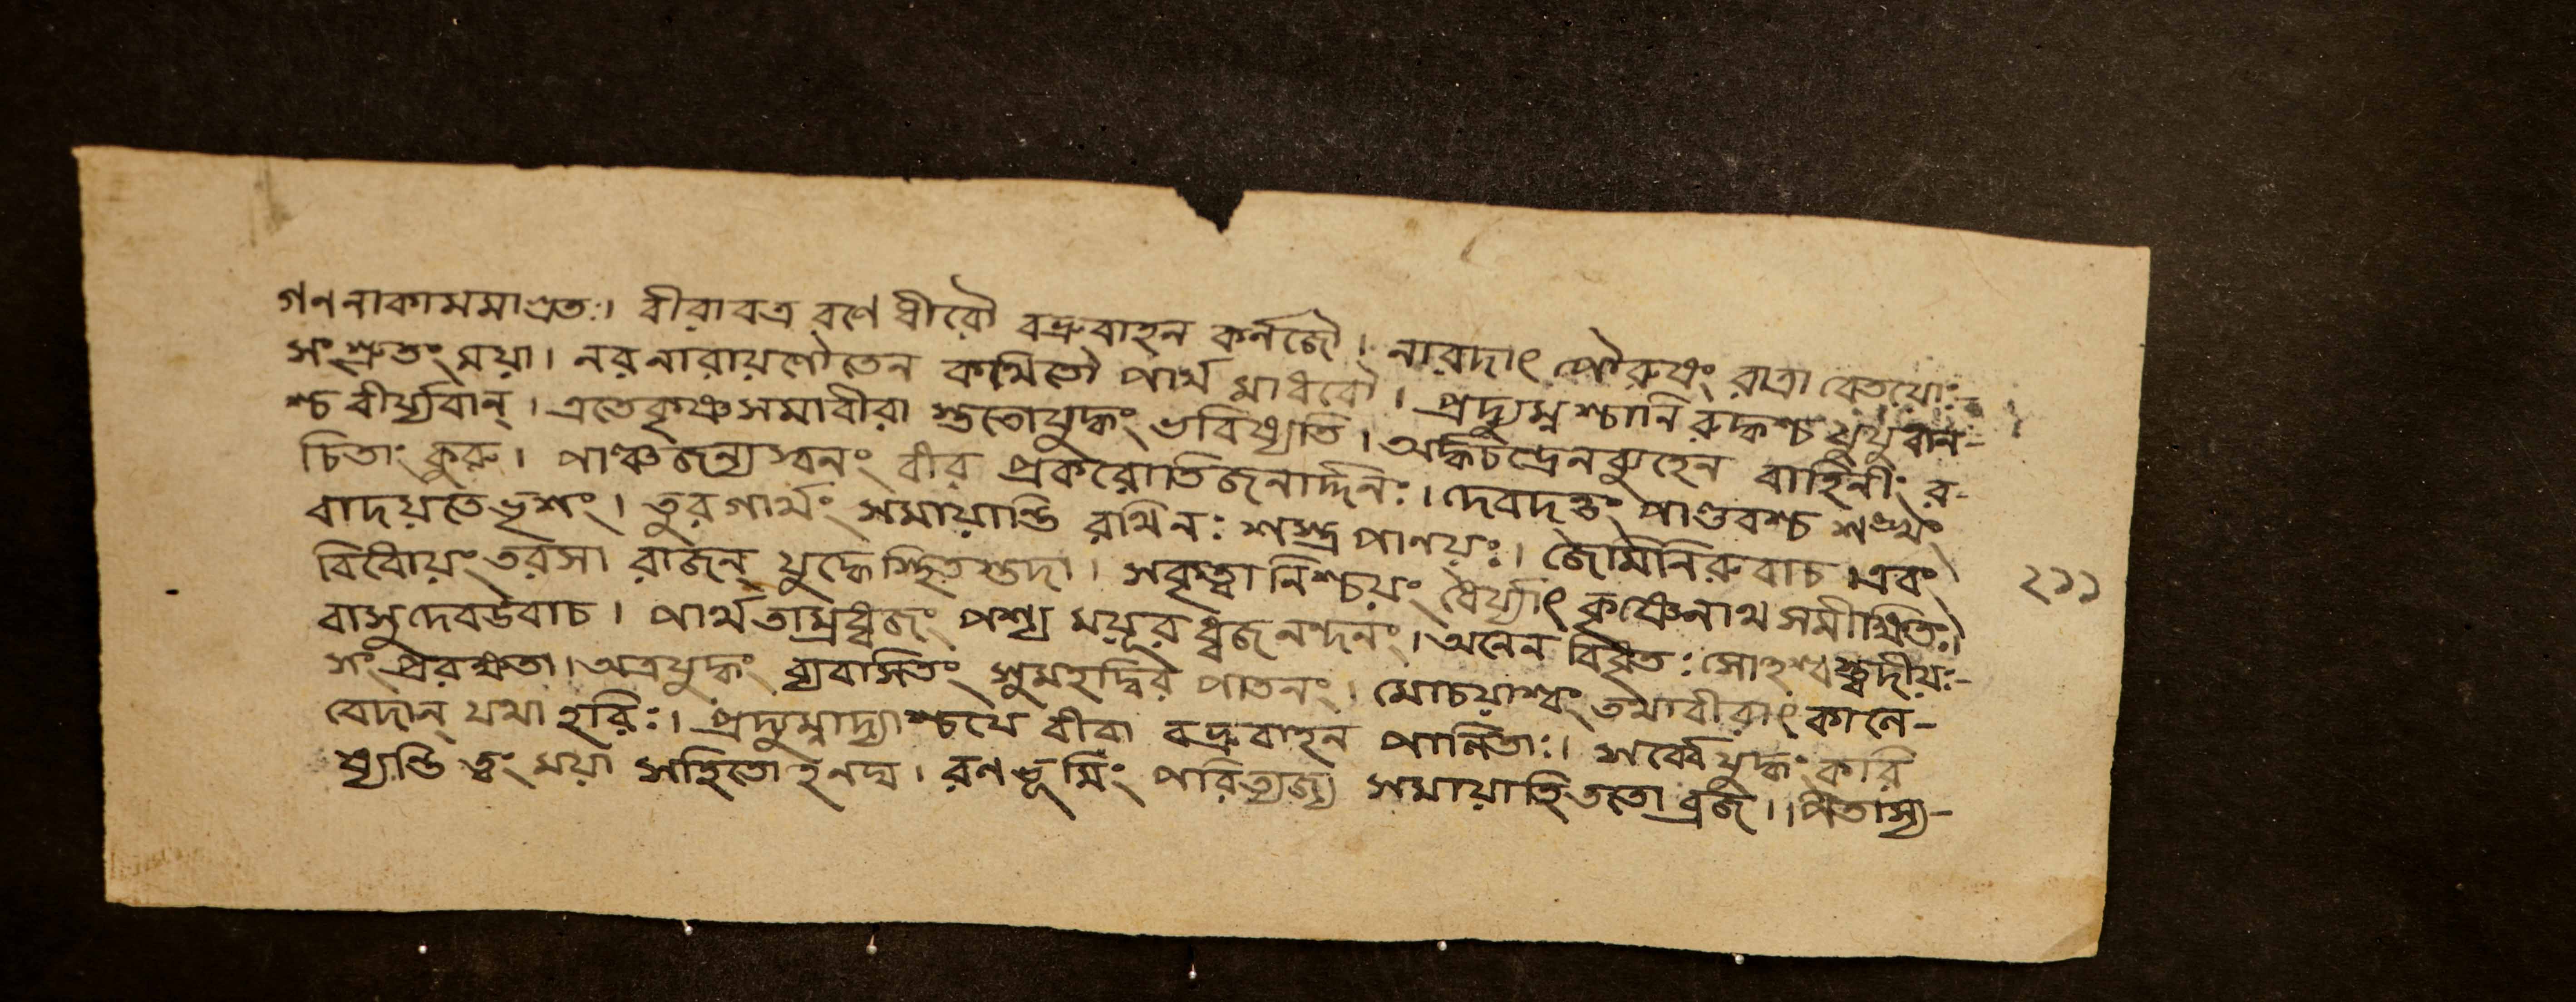 গননাকামমাশ্রুত:। বীরাবত্র রণে ধীরৌ বভ্রুবাহন কর্নজৌ। নারদাৎ পৌরুষং রাত্রা বেতয়োঃ-
সংশ্রুতং ময়া। নরনারায়ণৌতেন কথিতৌ পার্থ মাধবৌ। প্রদ্যুম্নশ্চানিরুদ্ধশ্চ যুযুধান-
শ্চ বীর্য্যবান্। এতেকৃষ্ণসমাবীরা স্ততোযুদ্ধং ভবিষ্যতি। অর্দ্ধচন্দ্রেনব্যুহেন বাহিনীং র-
চিতাং কুরু। পাঞ্চজন্যস্বনং বীর প্রকরোতিজনার্দ্দনঃ। দেবদত্তং পাণ্ডবশ্চ শঙ্খং
বাদয়তেভৃশং। তুরগার্থং সমায়ান্তি রথিনঃ শস্ত্রপাণয়ঃ। জৈমিনিরুবাচ। এবং
বিবোয়ং তরসা রাজন্ যুদ্ধেস্থিতস্তদা। সকৃত্বানিশ্চয়ং ধৈর্য্যাৎ কৃষ্ণেনাথ সমীক্ষিতঃ।
২১১
বাসুদেবউবাচ। পার্থতাম্রধ্বজং পশ্য ময়ূরধ্বজনন্দনং। অনেন বিধৃতঃ সোহশ্বস্ত্বদীয়ঃ-
সং প্ররক্ষতা। অত্রযুদ্ধং ব্যবাসিতং সুমহদ্বীর পাতনং। মোচয়াশ্বং তথাবীরাং কালে-
বেদান্ যথা হরিঃ। প্রদ্যুম্নাদ্যাশ্চযে বীরা বভ্রুবাহন পালিতাঃ। সর্ব্বেযুদ্ধং করি
ষ্যন্তি ত্বং ময়া সহিতো হনঘ। রণভূমিং পরিত্যজ্য সমায়াহিততো ব্রজ।। পিতাস্য-